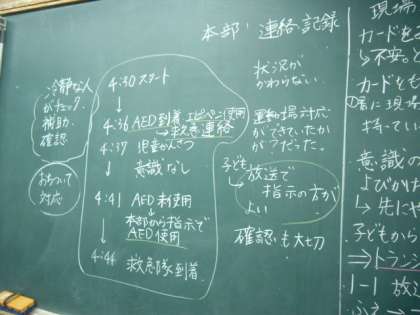 本部 連絡記録
冷静な人
がチェック.
補助.
確認
おちついて
対応
4:30 スタート
↓
4:36 AED到着 エピペン使用
→ 救急連絡
4:37 児童かんさつ
↓ 意識なし
4:41 AED 未使用
↓
本部から指示で
AED使用
4:44 救急隊到着
状況が
わからない.
運動場対応
ができていたか
が?だった。
子ども
↳ 放送で
指示の方が
よい
確認も大切
現場
カードを
→不安。と
カードを
持ってい
意識の
よびかけ
→先にや
子どもから
⇒トランシ
1-1 放送